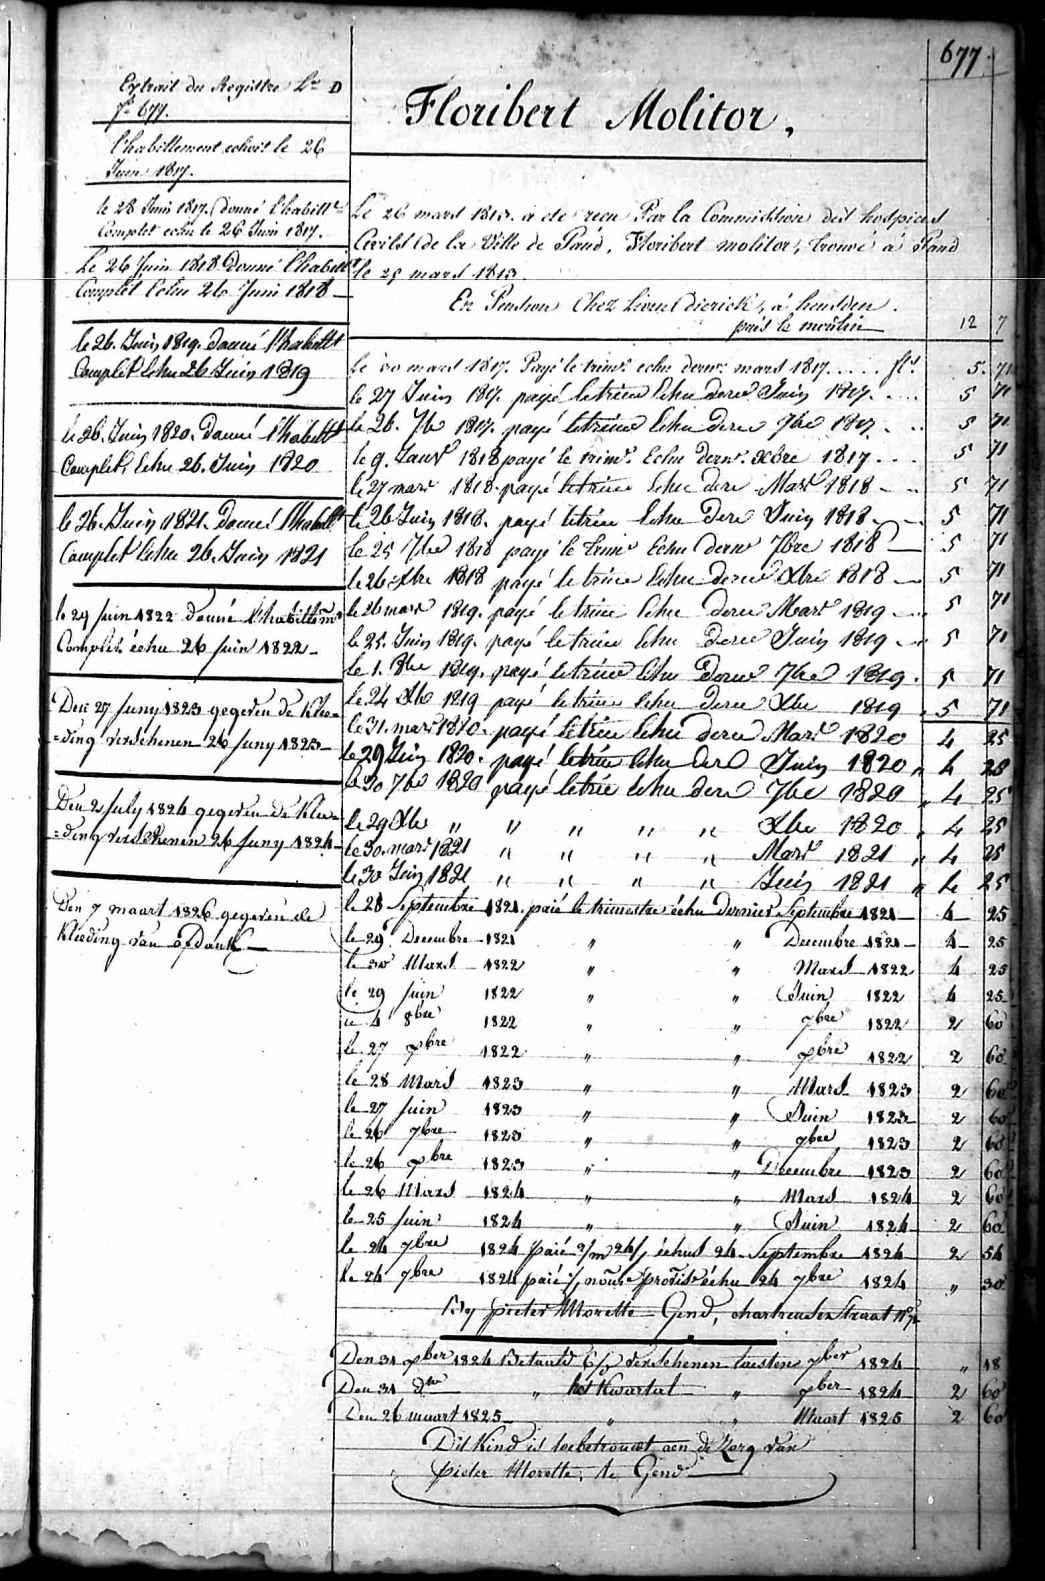 677
Extrait du Registre Lre D
fo 677.
l'habillement echoit le 26
Juin 1817.
le 28 Juin 1817. donné l'habillt
Complet echu le 26 Juin 1817.
Le 26 Juin 1818 donné l'habillt
Complet Echu 26 Juin 1818
le 26. Juin 1819. donné l'habillt
Complet Echu 26 Juin 1819
le 26. Juin 1820. donné l'habillt
Complet, Echu 26. Juin 1820
le 26. Juin 1821. donné l'habillt
Complet Echu 26. Juin 1821
le 29 Juin 1822 donné l'habillemt
Complet échu 26 Juin 1822
Den 27 Juny 1823 gegeven de klee=
=ding verschenen 26 Juny 1823
Den 2 July 1824 gegeven de klee=
=ding verschenen 26 Juny 1824
Den 7 maart 1826 gegeven de
kleeding van opdank
Floribert Molitor.
Le 26 mars 1813. a été reçu Par la Commission des hospices
Civils de la Ville de Gand, Floribert molitor, trouvé à Gand
le 25 mars 1813.
En Pension Chez Lieven Dierick, à heusden
près le moulin 12 7
Le 30 mars 1817. Payé le trimr. echu dernr. mars 1817. . . . . fls. 5. 71
le 27 Juin 1817. payé le trime Echu derne Juin 1817. . . . 5 71
le 26. 7be 1817. payé le trime Echu derne 7bre 1817 . . 5 71
le 9. Janvr 1818 payé le trimr. Echu dernr. Xbre 1817 . . . 5 71
le 27 mars 1818. payé le trime Echu derne Mars 1818 - .. 5 71
le 26 Juin 1818. payé le trime Echu derne Juin 1818 . 5 71
le 25 7bre 1818 payé le trimr Echu dernr 7bre 1818 5 71
le 26 Xbre 1818 payé le trime Echu derne Xbre 1818 5 71
le 26 mars 1819. payé le trime Echu derne Mars 1819 5 71
le 25. Juin 1819. payé le trime Echu derne Juin 1819 5 71
le 1. 8bre 1819. payé le trime Echu derne 7bre 1819. 5 71
le 24 Xbe 1819 payé le trime Echu derne Xbre 1819 5 71
le 31. mars 1820. payé le trime Echu derne Mars 1820 4 25
le 29 Juin 1820. payé le trime Echu derne Juin 1820 " 4 25
le 30 7be 1820 payé le trime Echu derne 7be 1820 " 4 25
le 29 Xbe " " " " " Xbre 1820 " 4 25
le 30. mars 1821 " " " " Mars 1821 " 4 25
le 30 Juin 1821 " " " " Juin 1821 " 4 25
le 28 Septembre 1821. paié le trimestre échu dernier Septembre 1821 4 25
le 29 Decembre 1821 " " Decembre 1821 4 25
le 30 Mars 1822 " " Mars 1822 4 25
le 29 Juin 1822 " " Juin 1822 4 25
le 4 8bre 1822 " " 7bre 1822 2 60
le 27 Xbre 1822 " " Xbre 1822 2 60
le 28 Mars 1823 " " Mars 1823 2 60
le 27 Juin 1823 " " Juin 1823 2 60
le 26 7bre 1823 " " 7bre 1823 2 60
le 26 Xbre 1823 " " Decembre 1823 2 60
le 26 Mars 1824 " " Mars 1824 2 60
le 25 Juin 1824 " " Juin 1824 2 60
le 24 7bre 1824 paié 2/m 24/j échus 24 Septembre 1824 2 54
le 24 Xbre 1824 paié échu 24 Xbre 1824 " 30
By pieter Morette Gend, chartreusen Straat No
Den 31 Xber 1824 Betaald 6/j verschenen laesten 7ber 1824 " 18
Den 31 dto " het kwartal " Xber 1824 2 60
Den 26 maart 1825 " " Maart 1825 2 60
Dit Kind is toebetrouwt aen de zorg van
pieter Morette, te Gend